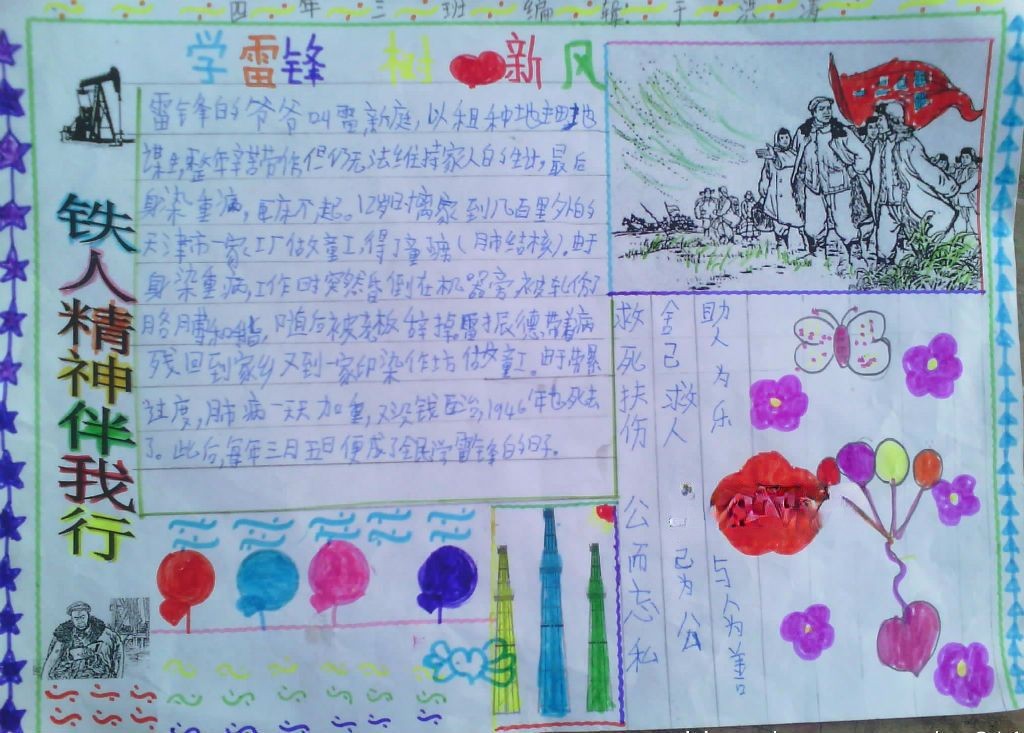 四 年 三 班 编 辑: 于 洪 涛
学雷锋 树 新风
铁人精神伴我行
雷锋的爷爷叫雷新庭,以租种地主田地
谋生,整年辛苦劳作但仍无法维持家人的生计,最后
身染重病,卧床不起。12岁时离家到几百里外的
天津市一家工厂做童工,得了童痨(肺结核)。由于
身染重病,工作时突然昏倒在机器旁被轧伤了
胳膊和 随后被老板辞掉。雷振德带着病
残回到家乡又到一家印染作坊做童工。由于劳累
过度,肺病一天天加重,又没钱医治,1946年也死去
了。此后,每年三月五日便成了全民学雷锋的日子。
助人为乐 与人为善
舍己救人 己为公
救死扶伤 公而忘私